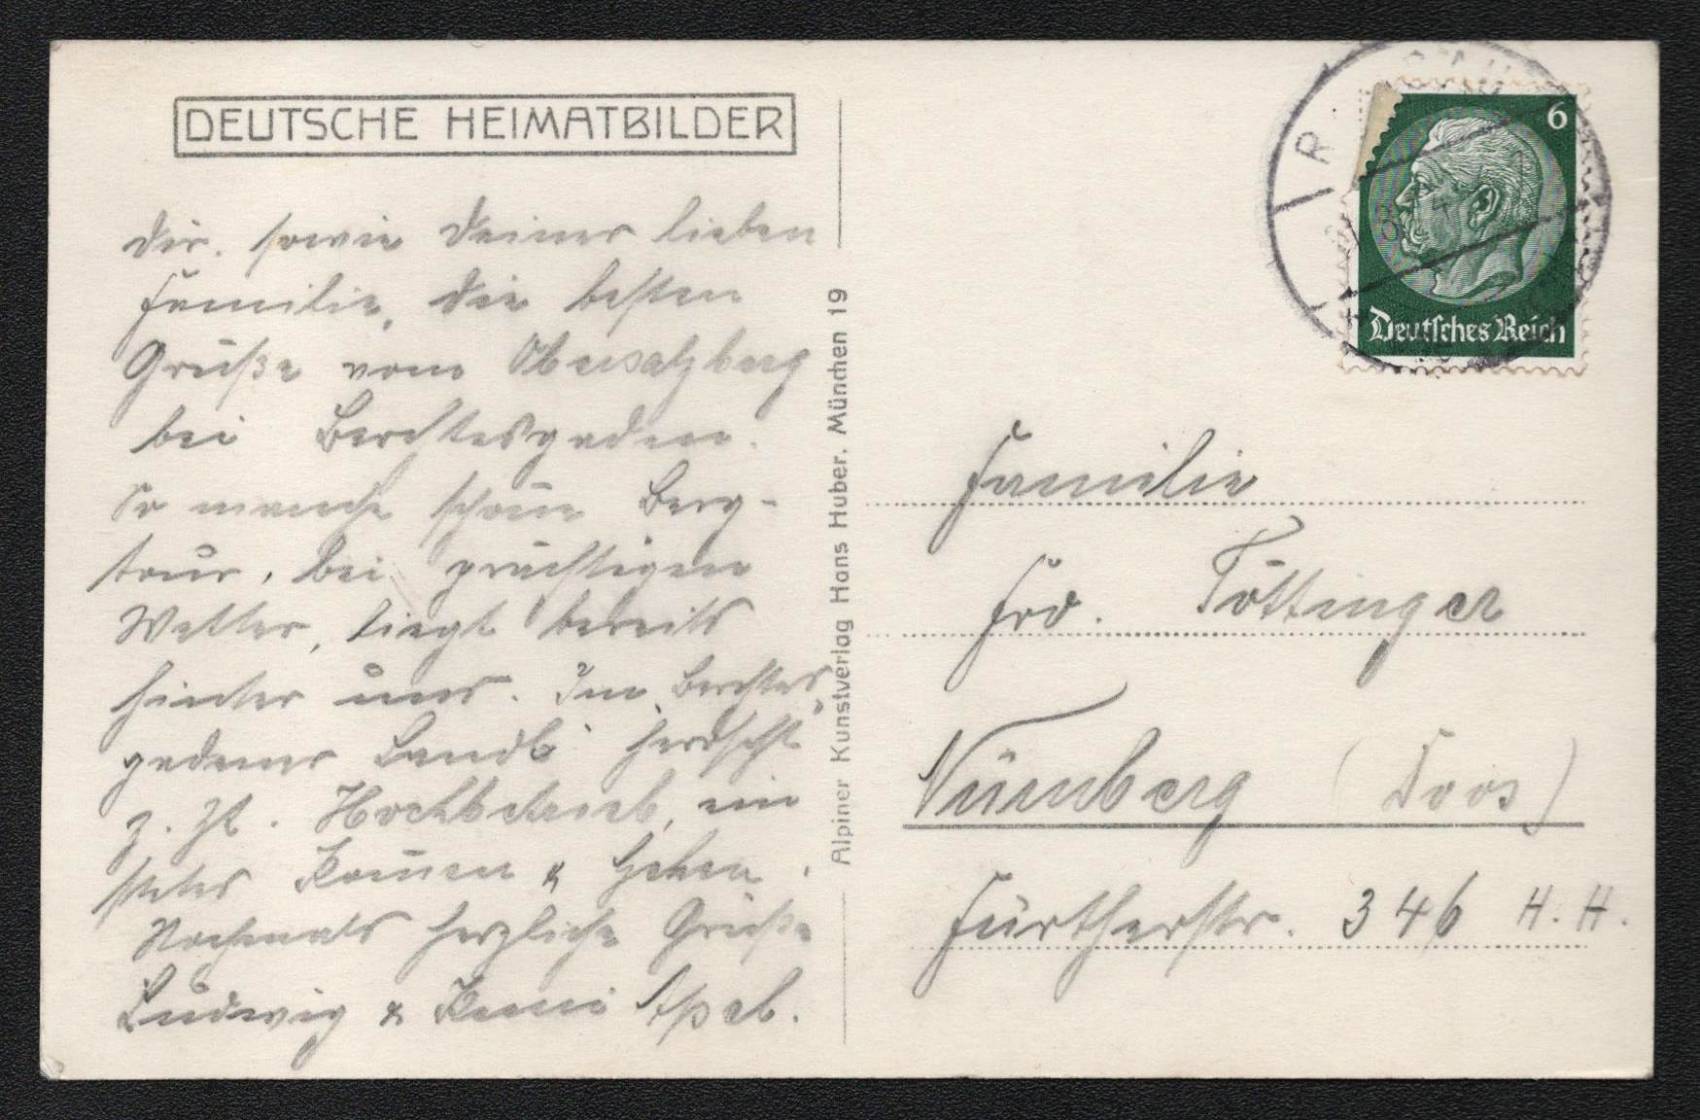 DEUTSCHE HEIMATBILDER
Dir, sowie Deiner lieben
Familie, die besten
Grüße vom Obersalzberg
bei Berchtesgaden.
So manche schöne Berg-
tour, bei prächtigem
Wetter, liegt bereits
hinter uns. Im Berchtes-
gadener Landl herrscht
z. Zt. Hochbetrieb, ein
stetes Kommen & Gehen.
Nochmals herzliche Grüße
Ludwig & Apel.
Alpiner Kunstverlag Hans Huber, München 19
6
Deutsches Reich
Familie
Frd. Töttinger
Nürnberg (Doos)
Fürtherstr. 346 H. H.